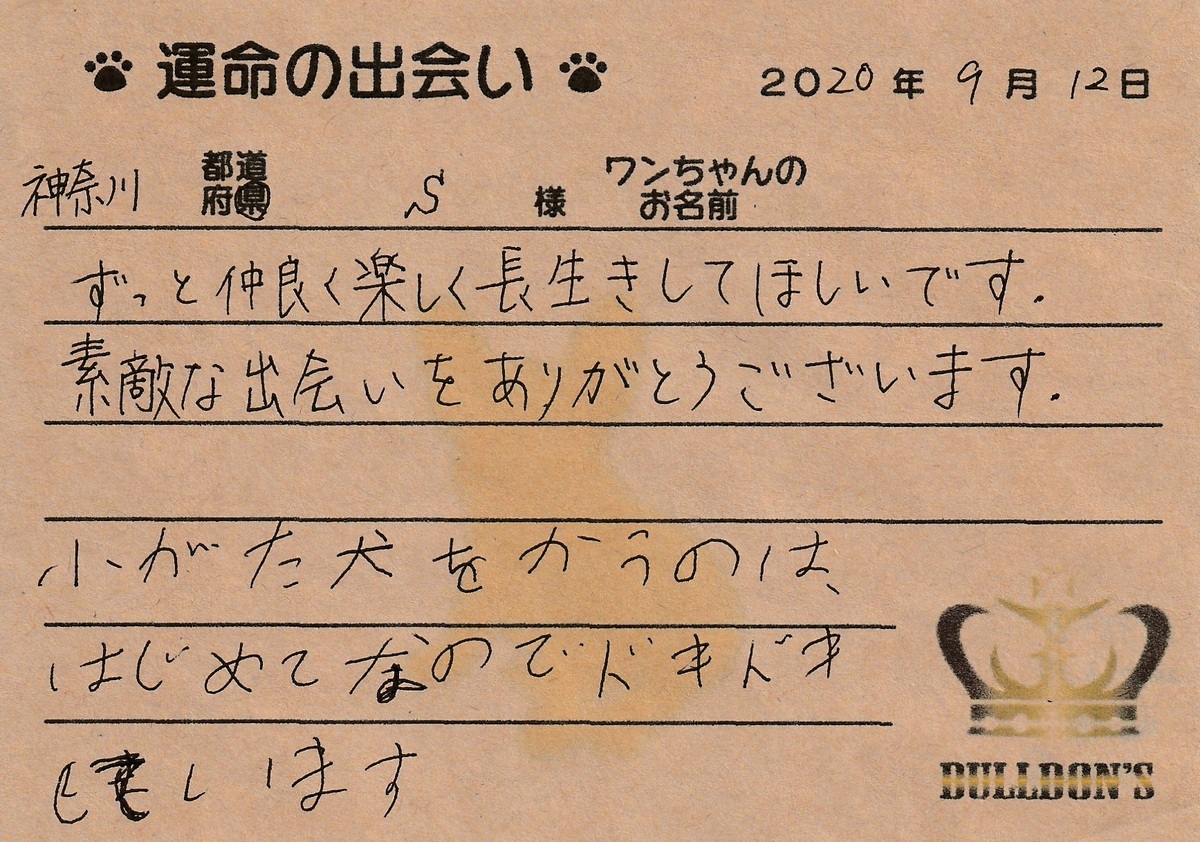 運命の出会い 2020年9月12日
神奈川 都道府県 S 様 ワンちゃんのお名前
ずっと仲良く楽しく長生きしてほしいです.
素敵な出会いをありがとうございます.
小がた犬をかうのは、
はじめてなのでドキドキ
しています
BULLDON'S